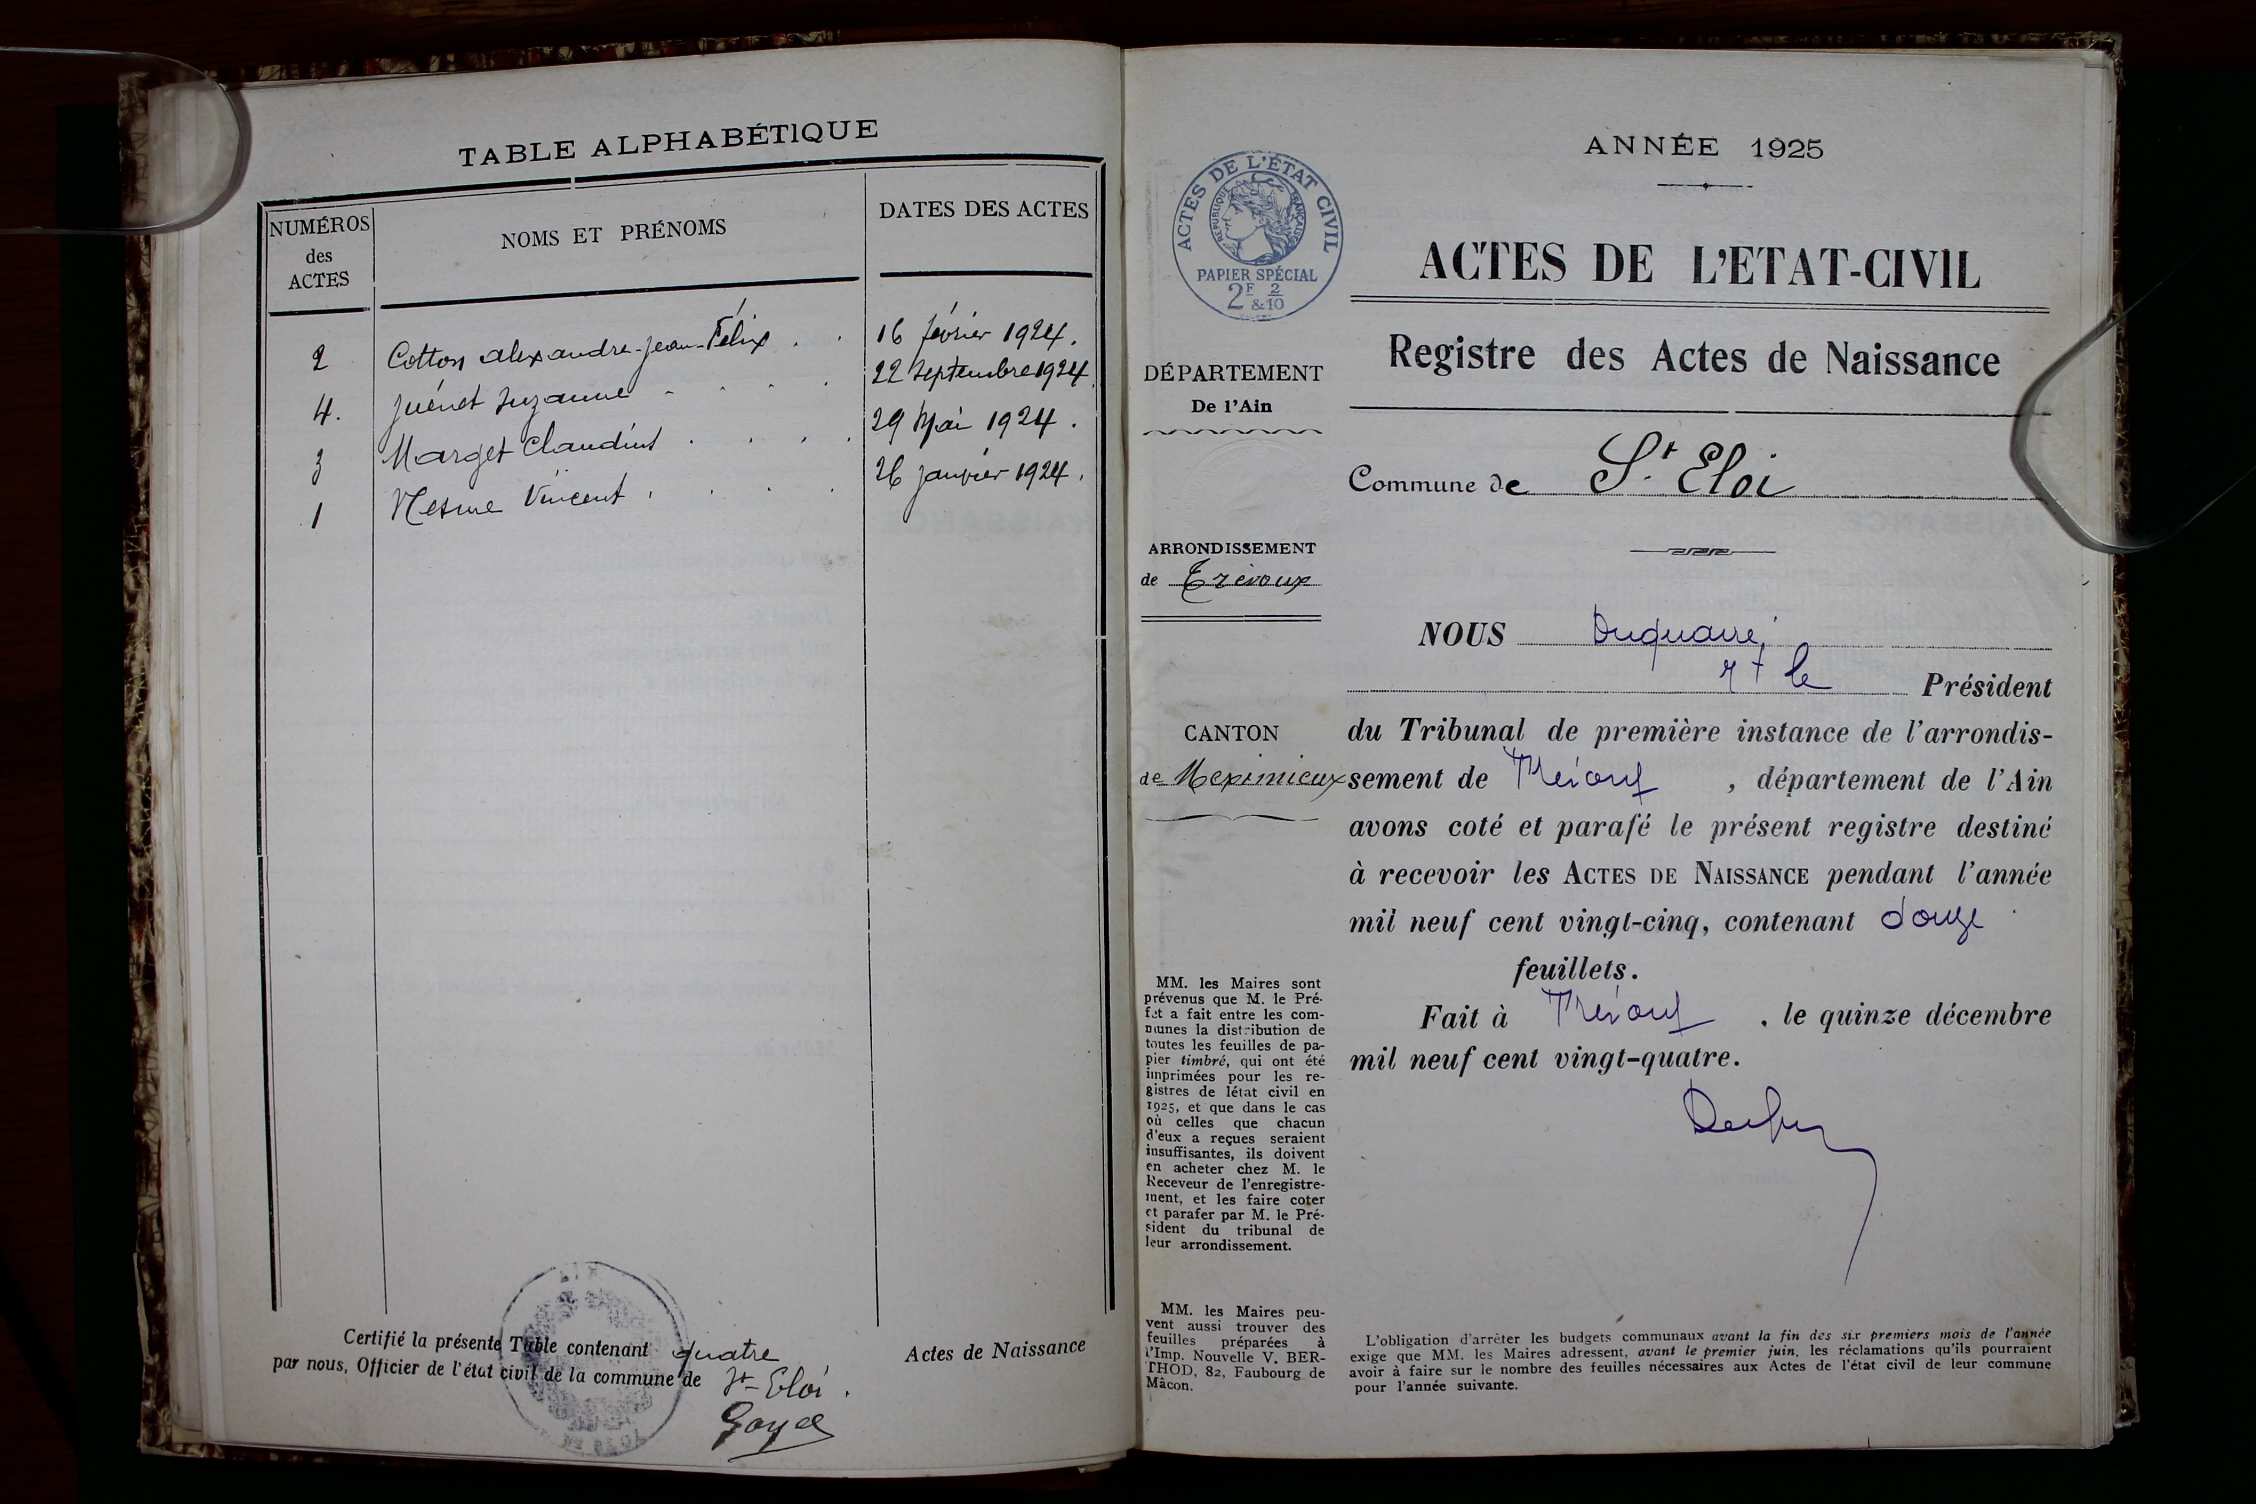 TABLE ALPHABÉTIQUE
NUMÉROS
des
ACTES
NOMS ET PRÉNOMS
DATES DES ACTES
2 Cotton Alexandre-Jean-Félix . . 16 février 1924.
4. Juénet Suzanne . . . . 22 Septembre 1924
3 Marget Claudius . . . . 29 Mai 1924.
1 Mesme Vincent . . . . 26 janvier 1924.
Certifié la présente Table contenant quatre Actes de Naissance
par nous, Officier de l'état civil de la commune de St-Eloi.
ANNÉE 1925
ACTES DE L'ÉTAT CIVIL
RÉPUBLIQUE FRANÇAISE
PAPIER SPÉCIAL
2F & 2/10
ACTES DE L'ETAT-CIVIL
Registre des Actes de Naissance
DÉPARTEMENT
De l'Ain
Commune de St. Eloi
ARRONDISSEMENT
de Trévoux
CANTON
de Meximieux
NOUS Duquaire,
Président
du Tribunal de première instance de l'arrondis-
sement de Trévoux, département de l'Ain
avons coté et parafé le présent registre destiné
à recevoir les ACTES DE NAISSANCE pendant l'année
mil neuf cent vingt-cinq, contenant douze
feuillets.
Fait à Trévoux, le quinze décembre
mil neuf cent vingt-quatre.
MM. les Maires sont
prévenus que M. le Pré-
fet a fait entre les com-
munes la distribution de
toutes les feuilles de pa-
pier timbré, qui ont été
imprimées pour les re-
gistres de létat civil en
1925, et que dans le cas
où celles que chacun
d'eux a reçues seraient
insuffisantes, ils doivent
en acheter chez M. le
Receveur de l'enregistre-
ment, et les faire coter
et parafer par M. le Pré-
sident du tribunal de
leur arrondissement.
MM. les Maires peu-
vent aussi trouver des
feuilles préparées à
l'Imp. Nouvelle V. BER-
THOD, 82, Faubourg de
Mâcon.
L'obligation d'arrêter les budgets communaux avant la fin des six premiers mois de l'année
exige que MM. les Maires adressent, avant le premier juin, les réclamations qu'ils pourraient
avoir à faire sur le nombre des feuilles nécessaires aux Actes de l'état civil de leur commune
pour l'année suivante.